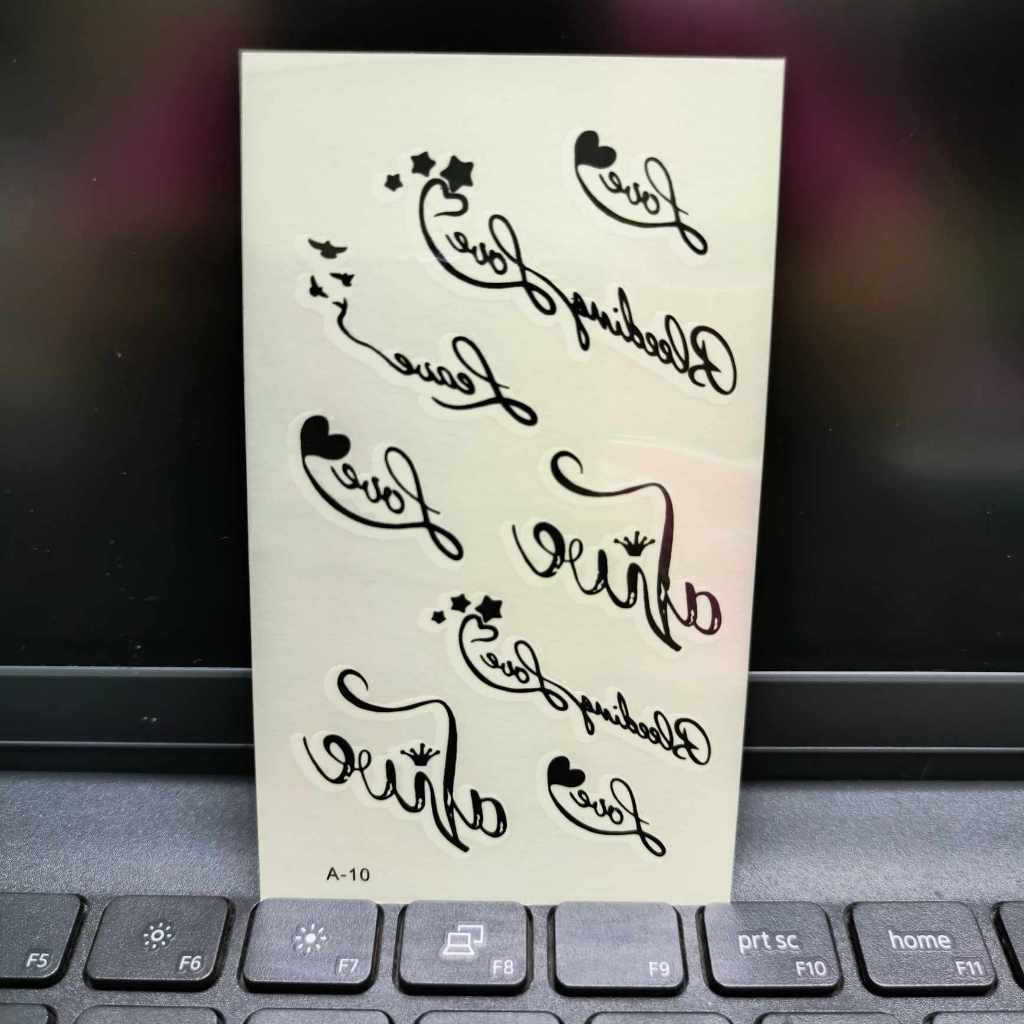 Love
Bleeding Love
Leave
Love
alive
Bleeding Love
alive
Love
A-10
F5
F6
F7
F8
F9
prt sc
F10
home
F11